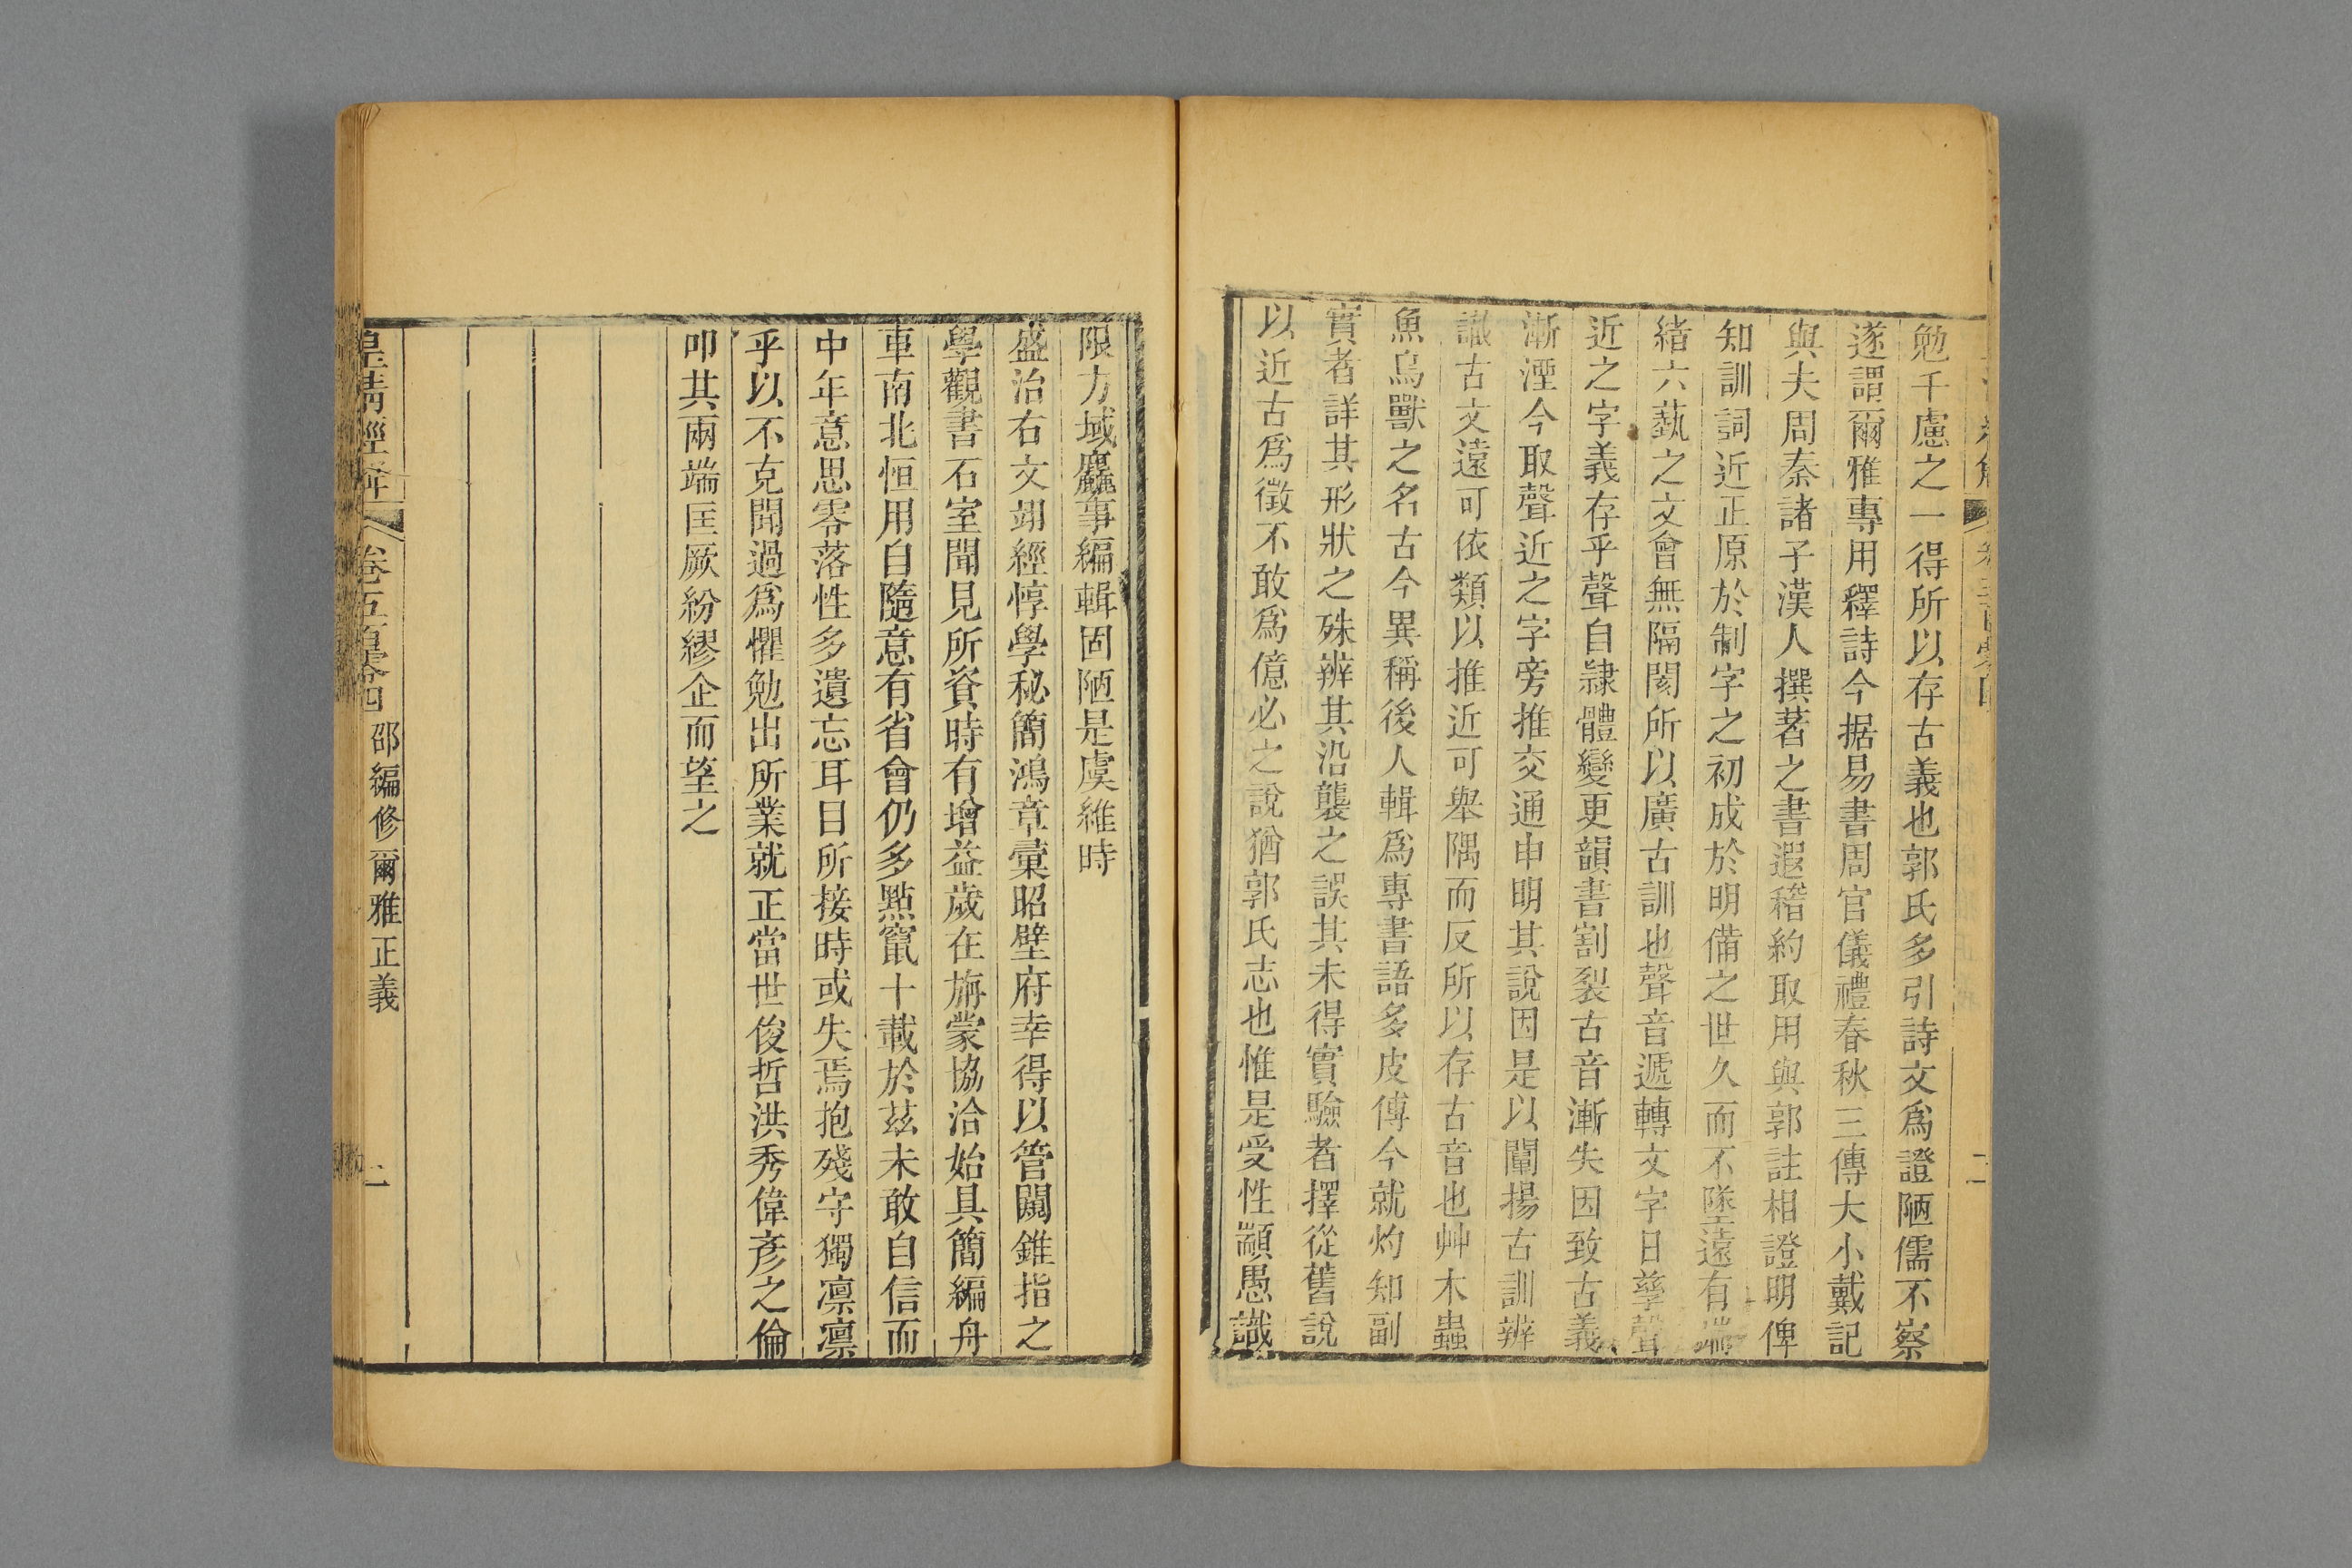 勉千慮之一得所以存古義也郭氏多引詩文爲證陋儒不察
遂謂爾雅專用釋詩今据易書周官儀禮春秋三傳大小戴記
與夫周秦諸子漢人撰著之書遐稽約取用與郭註相證明俾
知訓詞近正原於制字之初成於明備之世久而不墜遠有端
緒六藝之文曾無隔閡所以廣古訓也聲音遞轉文字日孳聲
近之字義存乎聲自隷體變更韻書割裂古音漸失因致古義
漸湮今取聲近之字旁推交通申明其說因是以闡揚古訓辨
識古文遠可依類以推近可舉隅而反所以存古音也艸木蟲
魚鳥獸之名古今異稱後人輯爲專書語多皮傅今就灼知副
實者詳其形狀之殊辨其沿襲之誤其未得實驗者擇從舊說
以近古爲徵不敢爲億必之說猶郭氏志也惟是受性顓愚識
限方域麤事編輯固陋是虞維時
盛治右文翊經惇學秘簡鴻章彙昭壁府幸得以管闚錐指之
學觀書石室聞見所資時有增益歲在旃蒙協洽始具簡編舟
車南北恒用自隨意有省會仍多點竄十載於茲未敢自信而
中年意思零落性多遺忘耳目所接時或失焉抱殘守獨凛凛
乎以不克聞過爲懼勉出所業就正當世俊哲洪秀偉彥之倫
叩其兩端匡厥紛繆企而望之
皇清經解 卷五百零四 邵編修爾雅正義 二